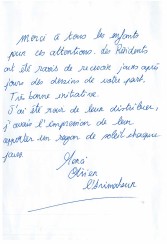 Merci à tous les enfants
pour ces attentions. Les Résidents
ont été ravis de recevoir jours après
jours des dessins de votre part.
Très bonne initiative.
J'ai été ravi de leur distribuer,
j'avais l'impression de leur
apporter un rayon de soleil chaque
jours.
Merci
Olivier
l'Animateur